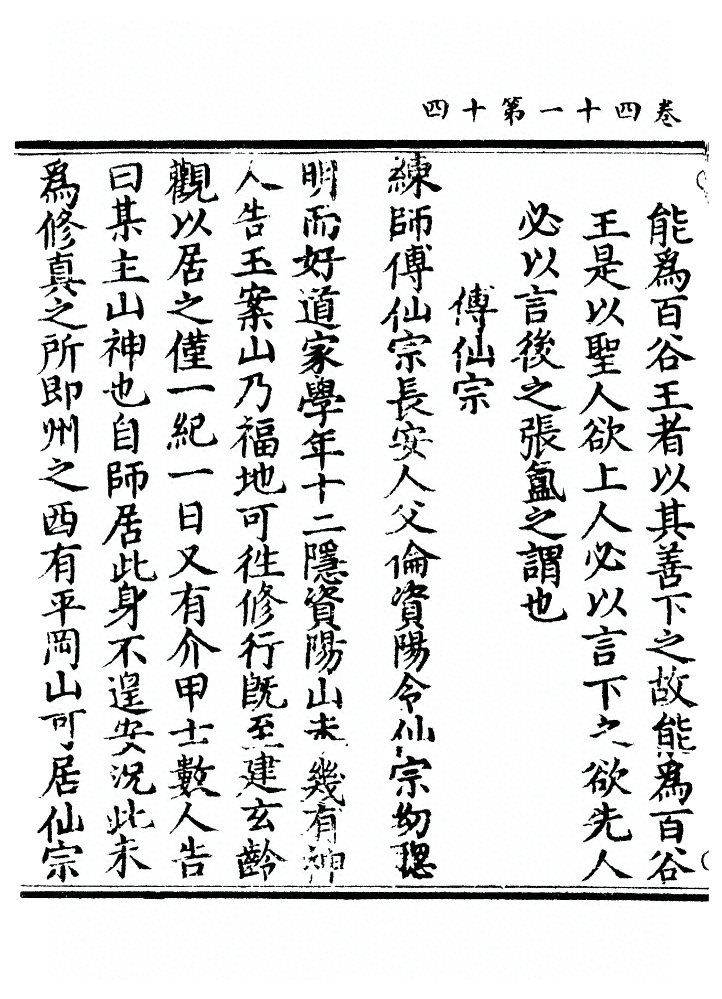 卷四十一第十四
能爲百谷王者以其善下之故能爲百谷
王是以聖人欲上人必以言下之欲先人
必以言後之張盫之謂也
傅仙宗
練師傅仙宗長安人父倫資陽令仙宗幼聦
明而好道家學年十二隱資陽山未幾有神
人告玉案山乃福地可徃修行旣至建玄齡
觀以居之僅一紀一日又有介甲士數人告
曰某主山神也自師居此身不遑安况此未
爲修真之所即州之西有平岡山可居仙宗